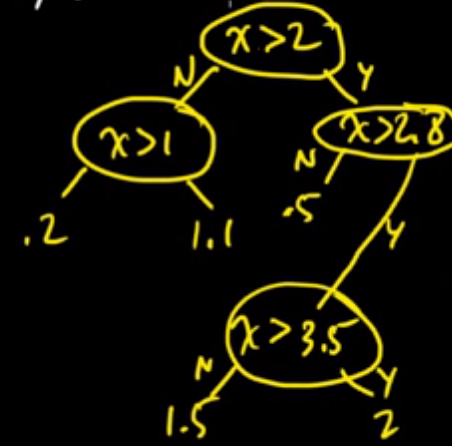 x>2
N Y
x>1 x>2.8
N
.2 1.1 .5 Y
x>3.5
N Y
1.5 2